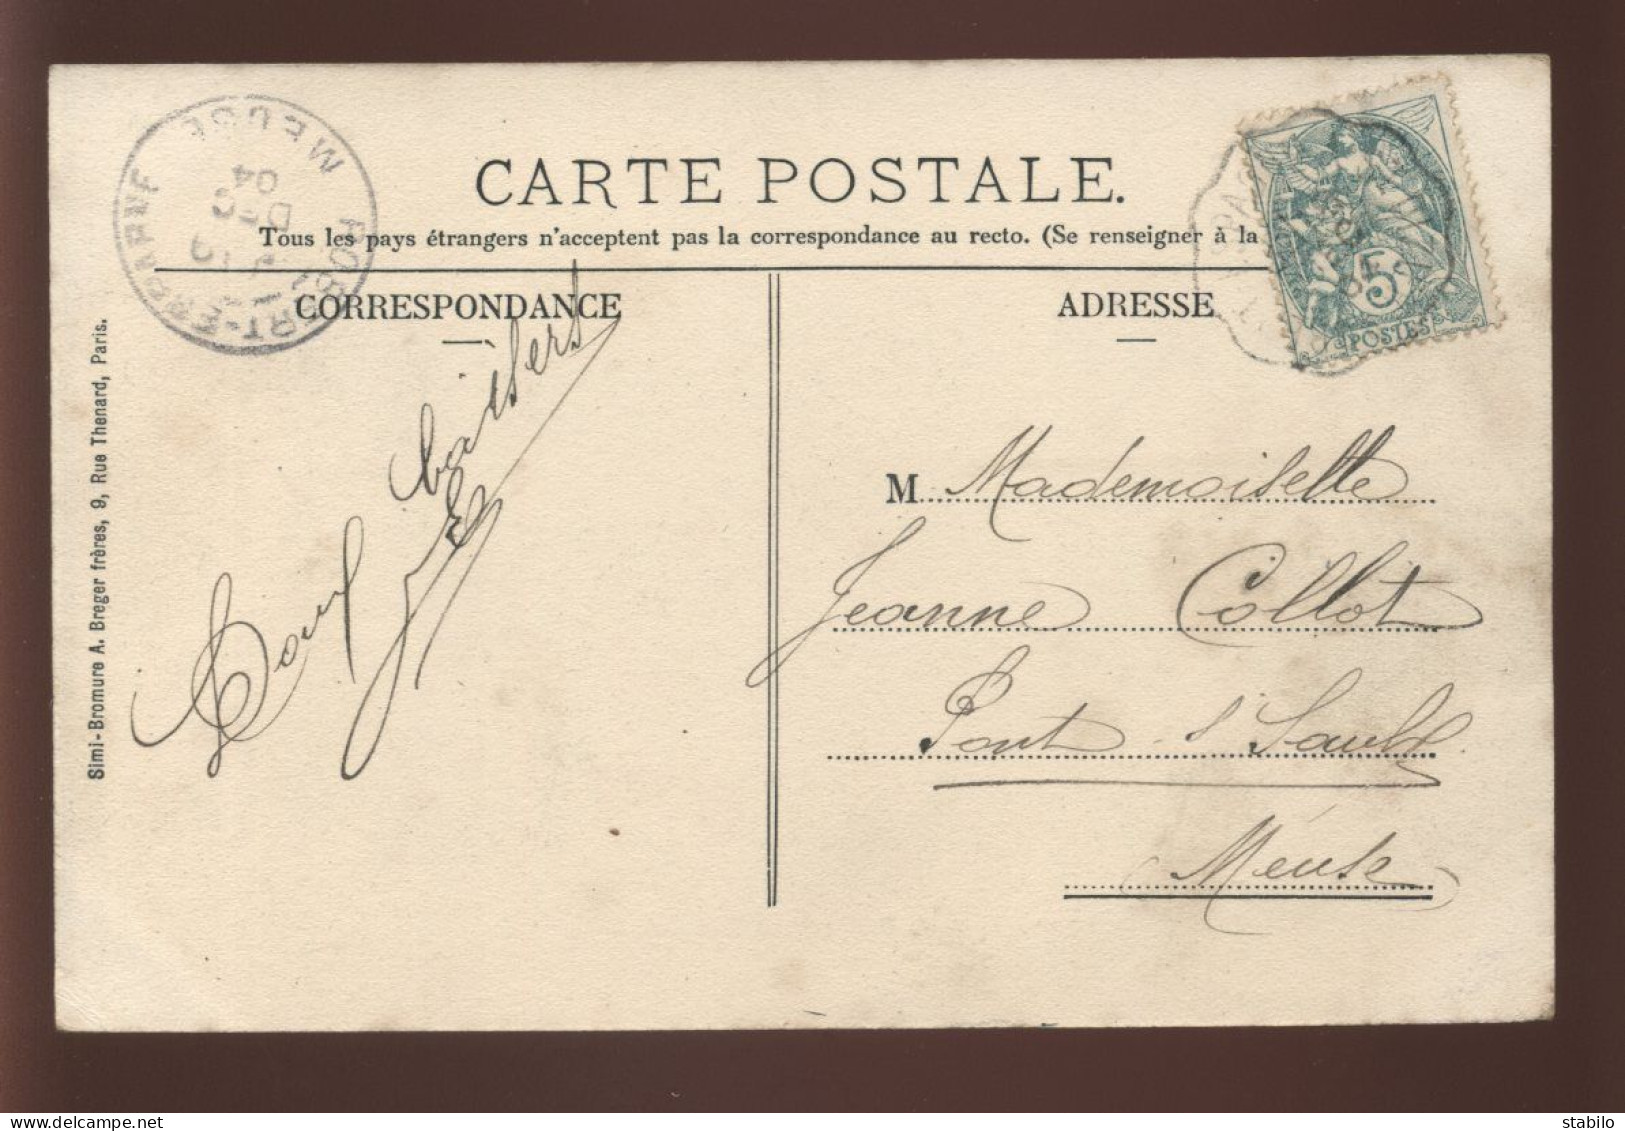 CARTE POSTALE.
Tous les pays étrangers n'acceptent pas la correspondance au recto. (Se renseigner à la
CORRESPONDANCE
ADRESSE
MEUSE
ROBERT-ESPAGNE
DEC
04
5
POSTES
baisers
M Mademoiselle
Jeanne Collot
Pont s/ Saulx
Meuse
Simi-Bromure A. Breger frères, 9, Rue Thenard, Paris.
stabilo